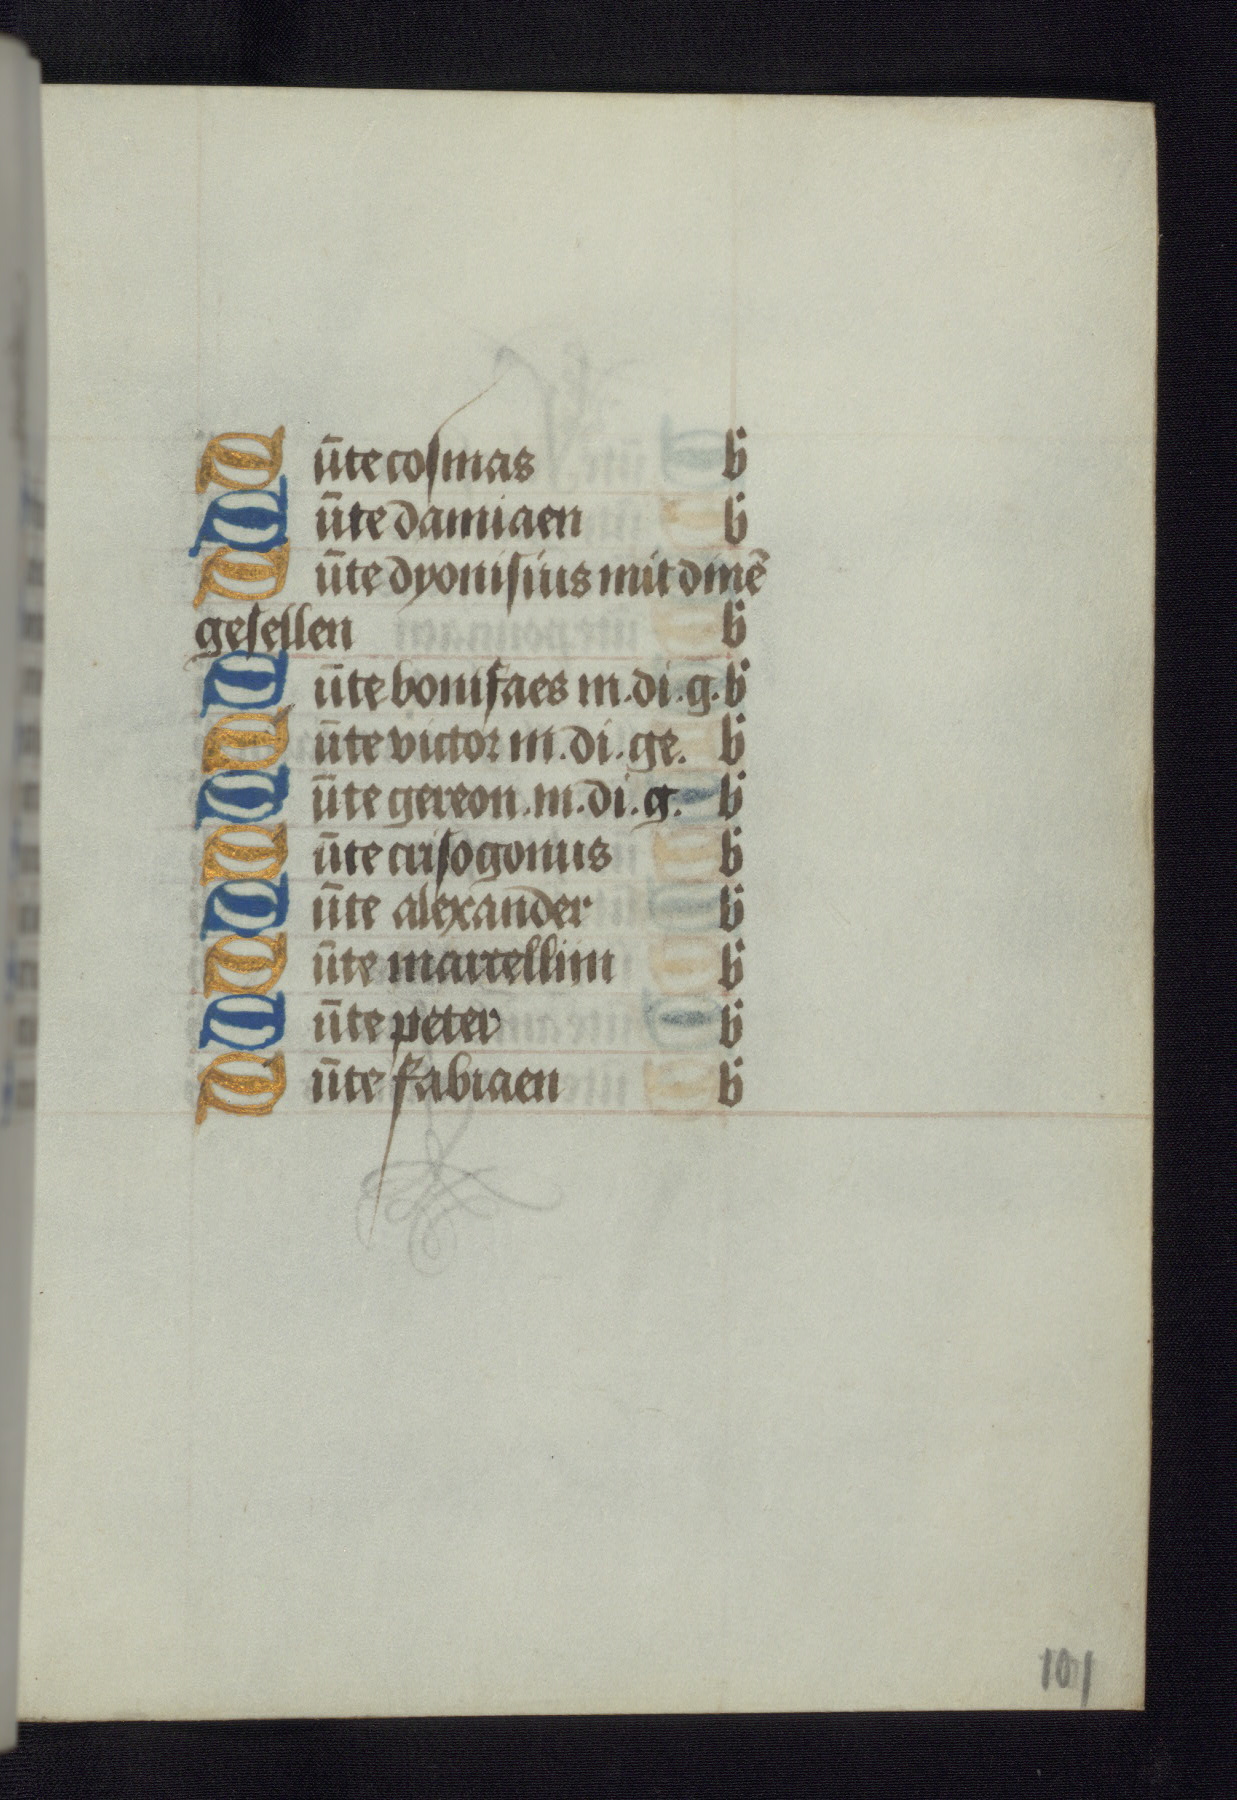 Sūte cosmas b
Sūte damiaen b
Sūte dyonisius mit dinē
gesellen b
Sūte bonifaes m. di. g. b
Sūte victor m. di. ge. b
Sūte gereon. m. di. g. b
Sūte crisogonus b
Sūte alexander b
Sūte marcellijn b
Sūte peter b
Sūte fabiaen b
101